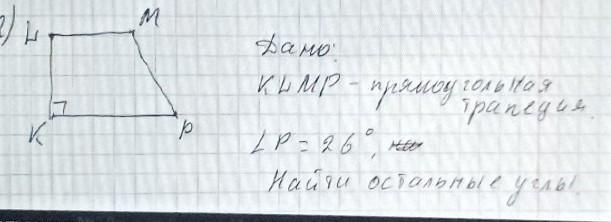 2)
L M
K P
Дано:
KLMP - прямоугольная
трапеция.
∠P = 26°,
Найти остальные углы.